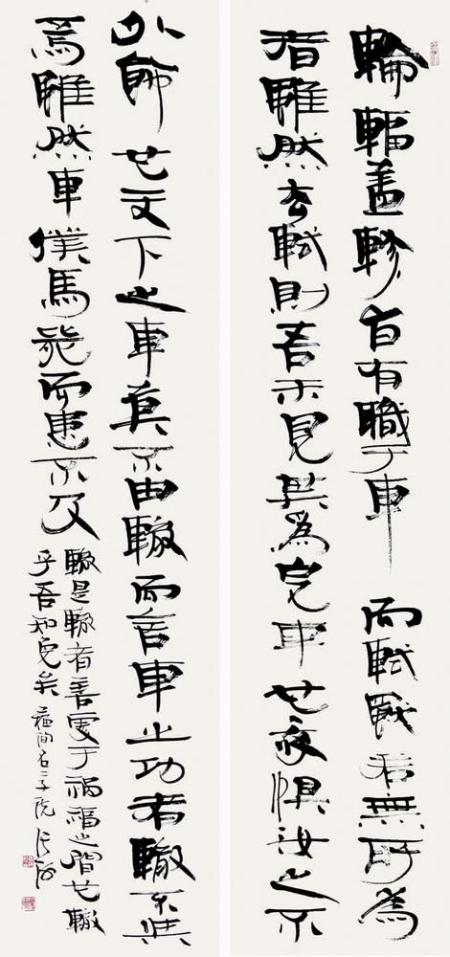 輪輻蓋軫皆有職于車而軾獨若無所為
者雖然去軾則吾未見其為完車也懼汝之不
外飾也天下之車莫不由轍而言車之功者轍不與
焉雖然車僕馬斃而患不及
轍是轍者善處于禍福之間也轍
乎吾知免矣蘇洵名二子說張海